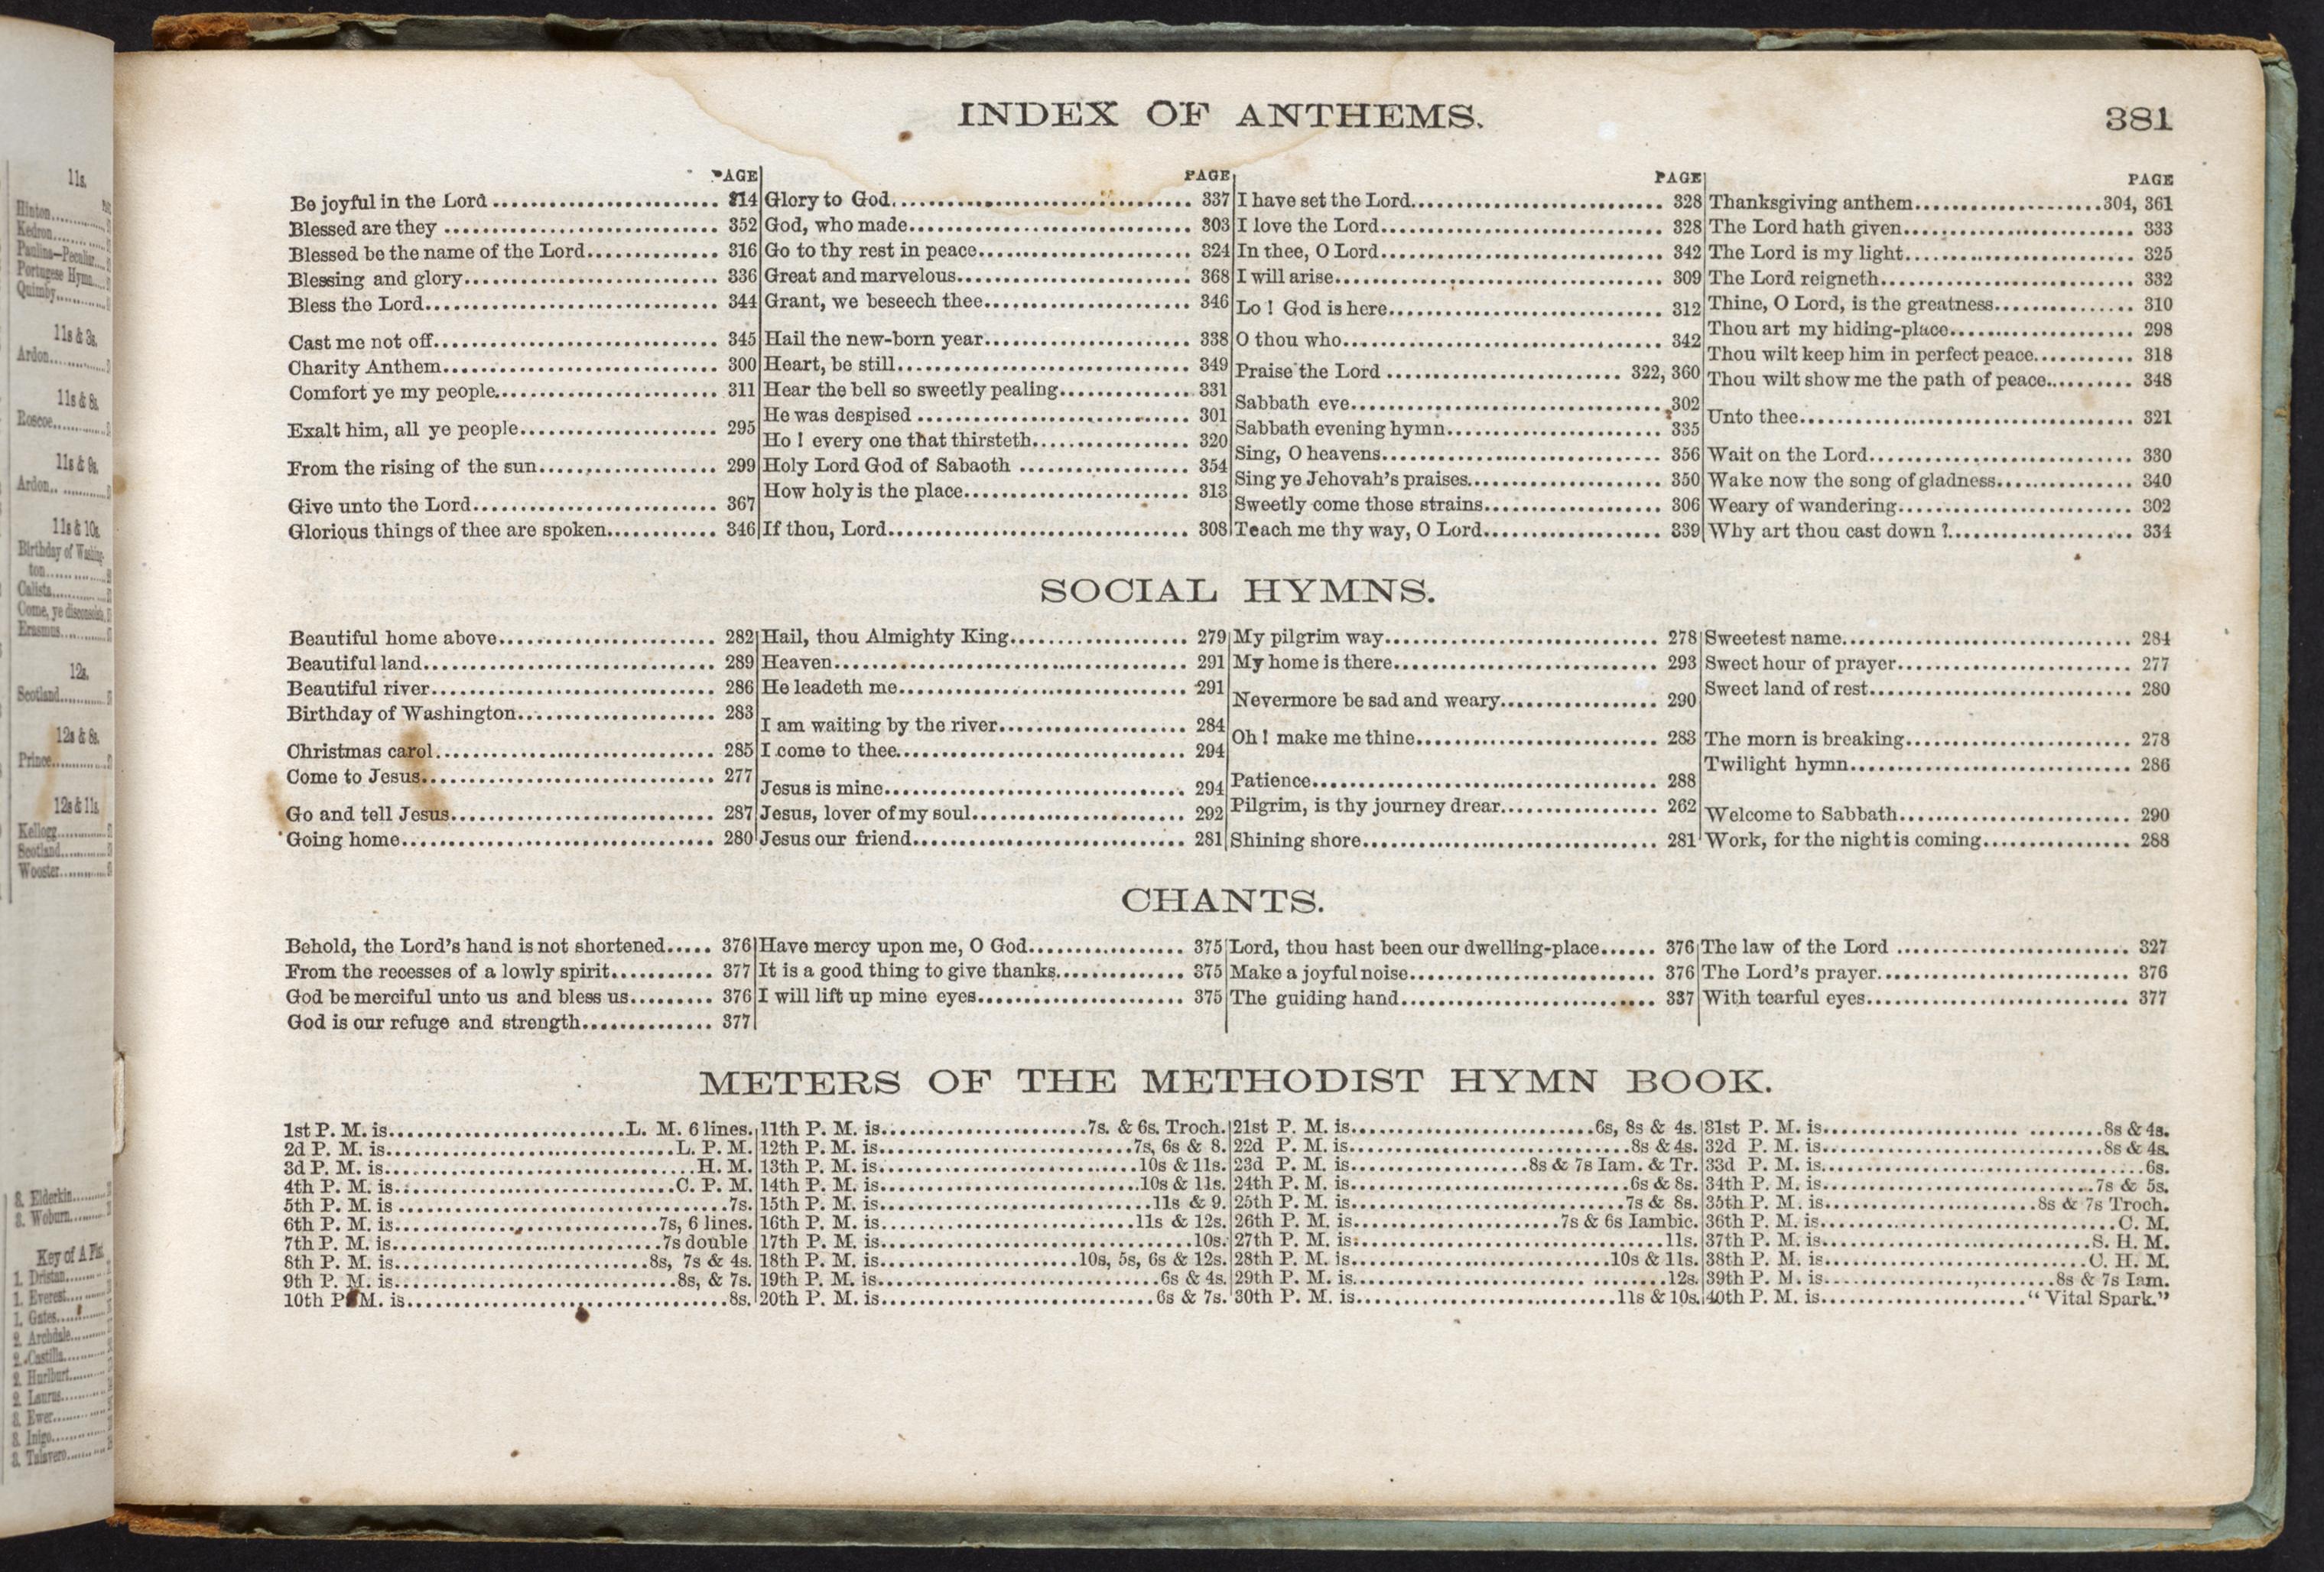 INDEX OF ANTHEMS.
381
PAGE
Be joyful in the Lord ........ 314
Blessed are they ........ 352
Blessed be the name of the Lord ........ 316
Blessing and glory ........ 336
Bless the Lord ........ 344
Cast me not off ........ 345
Charity Anthem ........ 300
Comfort ye my people ........ 311
Exalt him, all ye people ........ 295
From the rising of the sun ........ 299
Give unto the Lord ........ 367
Glorious things of thee are spoken ........ 346
PAGE
Glory to God ........ 337
God, who made ........ 303
Go to thy rest in peace ........ 324
Great and marvelous ........ 368
Grant, we beseech thee ........ 346
Hail the new-born year ........ 338
Heart, be still ........ 349
Hear the bell so sweetly pealing ........ 331
He was despised ........ 301
Ho ! every one that thirsteth ........ 320
Holy Lord God of Sabaoth ........ 354
How holy is the place ........ 313
If thou, Lord ........ 308
PAGE
I have set the Lord ........ 328
I love the Lord ........ 328
In thee, O Lord ........ 342
I will arise ........ 309
Lo ! God is here ........ 312
O thou who ........ 342
Praise the Lord ........ 322, 360
Sabbath eve ........ 302
Sabbath evening hymn ........ 335
Sing, O heavens ........ 356
Sing ye Jehovah's praises ........ 350
Sweetly come those strains ........ 306
Teach me thy way, O Lord ........ 339
PAGE
Thanksgiving anthem ........ 304, 361
The Lord hath given ........ 333
The Lord is my light ........ 325
The Lord reigneth ........ 332
Thine, O Lord, is the greatness ........ 310
Thou art my hiding-place ........ 298
Thou wilt keep him in perfect peace ........ 318
Thou wilt show me the path of peace ........ 348
Unto thee ........ 321
Wait on the Lord ........ 330
Wake now the song of gladness ........ 340
Weary of wandering ........ 302
Why art thou cast down ? ........ 334
SOCIAL HYMNS.
Beautiful home above ........ 282
Beautiful land ........ 289
Beautiful river ........ 286
Birthday of Washington ........ 283
Christmas carol ........ 285
Come to Jesus ........ 277
Go and tell Jesus ........ 287
Going home ........ 280
Hail, thou Almighty King ........ 279
Heaven ........ 291
He leadeth me ........ 291
I am waiting by the river ........ 284
I come to thee ........ 294
Jesus is mine ........ 294
Jesus, lover of my soul ........ 292
Jesus our friend ........ 281
My pilgrim way ........ 278
My home is there ........ 293
Nevermore be sad and weary ........ 290
Oh ! make me thine ........ 283
Patience ........ 288
Pilgrim, is thy journey drear ........ 262
Shining shore ........ 281
Sweetest name ........ 284
Sweet hour of prayer ........ 277
Sweet land of rest ........ 280
The morn is breaking ........ 278
Twilight hymn ........ 286
Welcome to Sabbath ........ 290
Work, for the night is coming ........ 288
CHANTS.
Behold, the Lord's hand is not shortened ..... 376
From the recesses of a lowly spirit ........ 377
God be merciful unto us and bless us ........ 376
God is our refuge and strength ........ 377
Have mercy upon me, O God ........ 375
It is a good thing to give thanks ........ 375
I will lift up mine eyes ........ 375
Lord, thou hast been our dwelling-place ...... 376
Make a joyful noise ........ 376
The guiding hand ........ 337
The law of the Lord ........ 327
The Lord's prayer ........ 376
With tearful eyes ........ 377
METERS OF THE METHODIST HYMN BOOK.
1st P. M. is ........ L. M. 6 lines.
2d P. M. is ........ L. P. M.
3d P. M. is ........ H. M.
4th P. M. is ........ C. P. M.
5th P. M. is ........ 7s.
6th P. M. is ........ 7s, 6 lines.
7th P. M. is ........ 7s double
8th P. M. is ........ 8s, 7s & 4s.
9th P. M. is ........ 8s, & 7s.
10th P. M. is ........ 8s.
11th P. M. is ........ 7s. & 6s. Troch.
12th P. M. is ........ 7s, 6s & 8.
13th P. M. is ........ 10s & 11s.
14th P. M. is ........ 10s & 11s.
15th P. M. is ........ 11s & 9.
16th P. M. is ........ 11s & 12s.
17th P. M. is ........ 10s.
18th P. M. is ........ 10s, 5s, 6s & 12s.
19th P. M. is ........ 6s & 4s.
20th P. M. is ........ 6s & 7s.
21st P. M. is ........ 6s, 8s & 4s.
22d P. M. is ........ 8s & 4s.
23d P. M. is ........ 8s & 7s Iam. & Tr.
24th P. M. is ........ 6s & 8s.
25th P. M. is ........ 7s & 8s.
26th P. M. is ........ 7s & 6s Iambic.
27th P. M. is ........ 11s.
28th P. M. is ........ 10s & 11s.
29th P. M. is ........ 12s.
30th P. M. is ........ 11s & 10s.
31st P. M. is ........ 8s & 4s.
32d P. M. is ........ 8s & 4s.
33d P. M. is ........ 6s.
34th P. M. is ........ 7s & 5s.
35th P. M. is ........ 8s & 7s Troch.
36th P. M. is ........ C. M.
37th P. M. is ........ S. H. M.
38th P. M. is ........ C. H. M.
39th P. M. is ........ 8s & 7s Iam.
40th P. M. is ........ "Vital Spark."
11s.
Hinton
Kedron
Paulina—Peculiar
Portugese Hymn
Quimby
11s & 3s.
Ardon
11s & 8s.
Roscoe
11s & 9s.
Ardon
11s & 10s.
Birthday of Washing-
ton
Calista
Come, ye disconsolate,
Erasmus
12s.
Scotland
12s & 8s.
Prince
12s & 11s.
Kellogg
Scotland
Wooster
3. Elderkin
3. Woburn
Key of A Flat
1. Dristan
1. Everest
1. Gates
2. Archdale
2. Castilla
2. Hurlburt
2. Laurus
3. Ewer
3. Inigo
3. Talavero